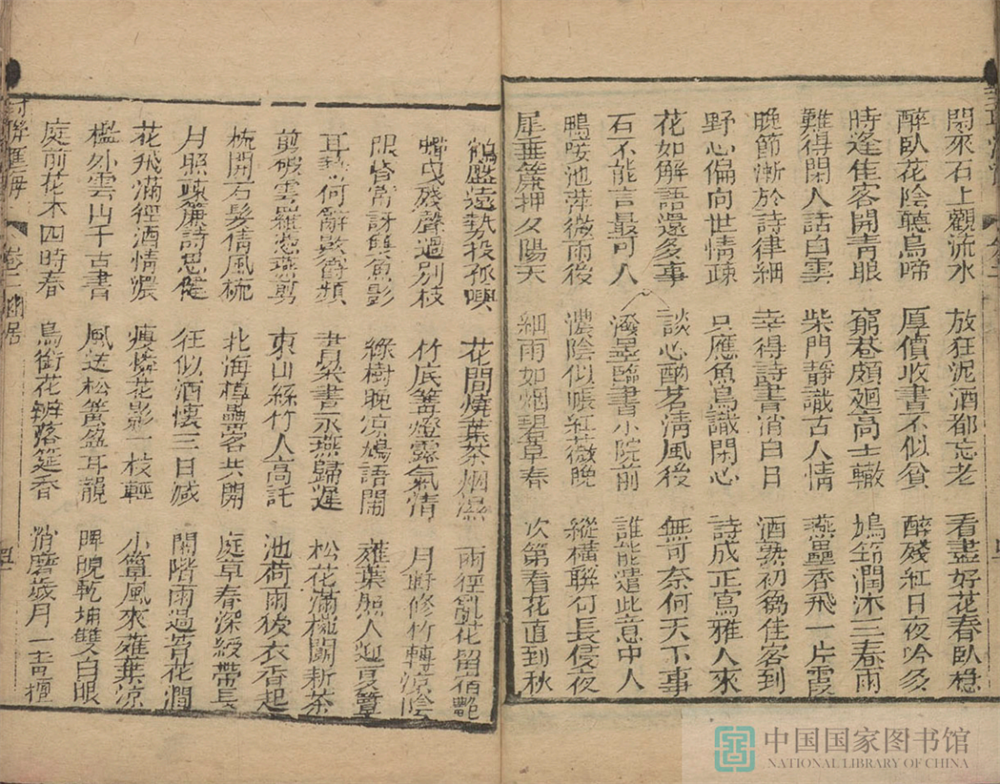 閑來石上觀流水 放狂泥酒都忘老 看盡好花春臥穩
醉臥花陰聽鳥啼 厚價收書不似貧 醉殘紅日夜吟多
時逢佳客開青眼 窮巷頗廻高士轍 鳩鳴潤沐三春雨
難得閑人話白雲 柴門静識古人情 燕壘香飛一片霞
晚節漸於詩律細 幸得詩書消白日 酒熟初篘佳客到
野心偏向世情疎 只應魚鳥識閑心 詩成正寫雅人來
花如解語還多事 談心酌茗清風後 無可奈何天下事
石不能言最可人 潑墨臨書小院前 誰能遣此意中人
鴨唼池萍微雨後 濃陰似帳紅薇晚 縱橫聯句長侵夜
犀垂簾押夕陽天 細雨如烟碧草春 次第看花直到秋
鶴盤遠勢投孤嶼 花間燒葉茶烟濕 雨徑亂花留宿艷
蟬曳殘聲過別枝 竹底篝燈露氣情 月軒修竹轉涼陰
眼昏常訝雙魚影 綠樹晚凉鳩語鬧 蕉葉照人迎夏簟
耳熱何辭數爵頻 永燕歸遲 松花滿椀鬭新茶
剪破雲羅憑燕剪 東山絲竹人高託 池荷雨後衣香起
梳開石髮倩風梳 北海樽罍客共開 庭草春深綬帶長
月照疎簾詩思健 狂似酒懷三日减 閑階雨過青花潤
花飛滿徑酒情濃 瘦憐花影一枝輕 小簟風來薤葉凉
檻外雲山千古書 風送松篁盈耳韻 睥睨乾坤雙白眼
庭前花木四時春 鳥銜花瓣落筵香 消磨歲月一青氊
對聯匯海 卷二 閑居 五
中国国家图书馆
NATIONAL LIBRARY OF CHINA